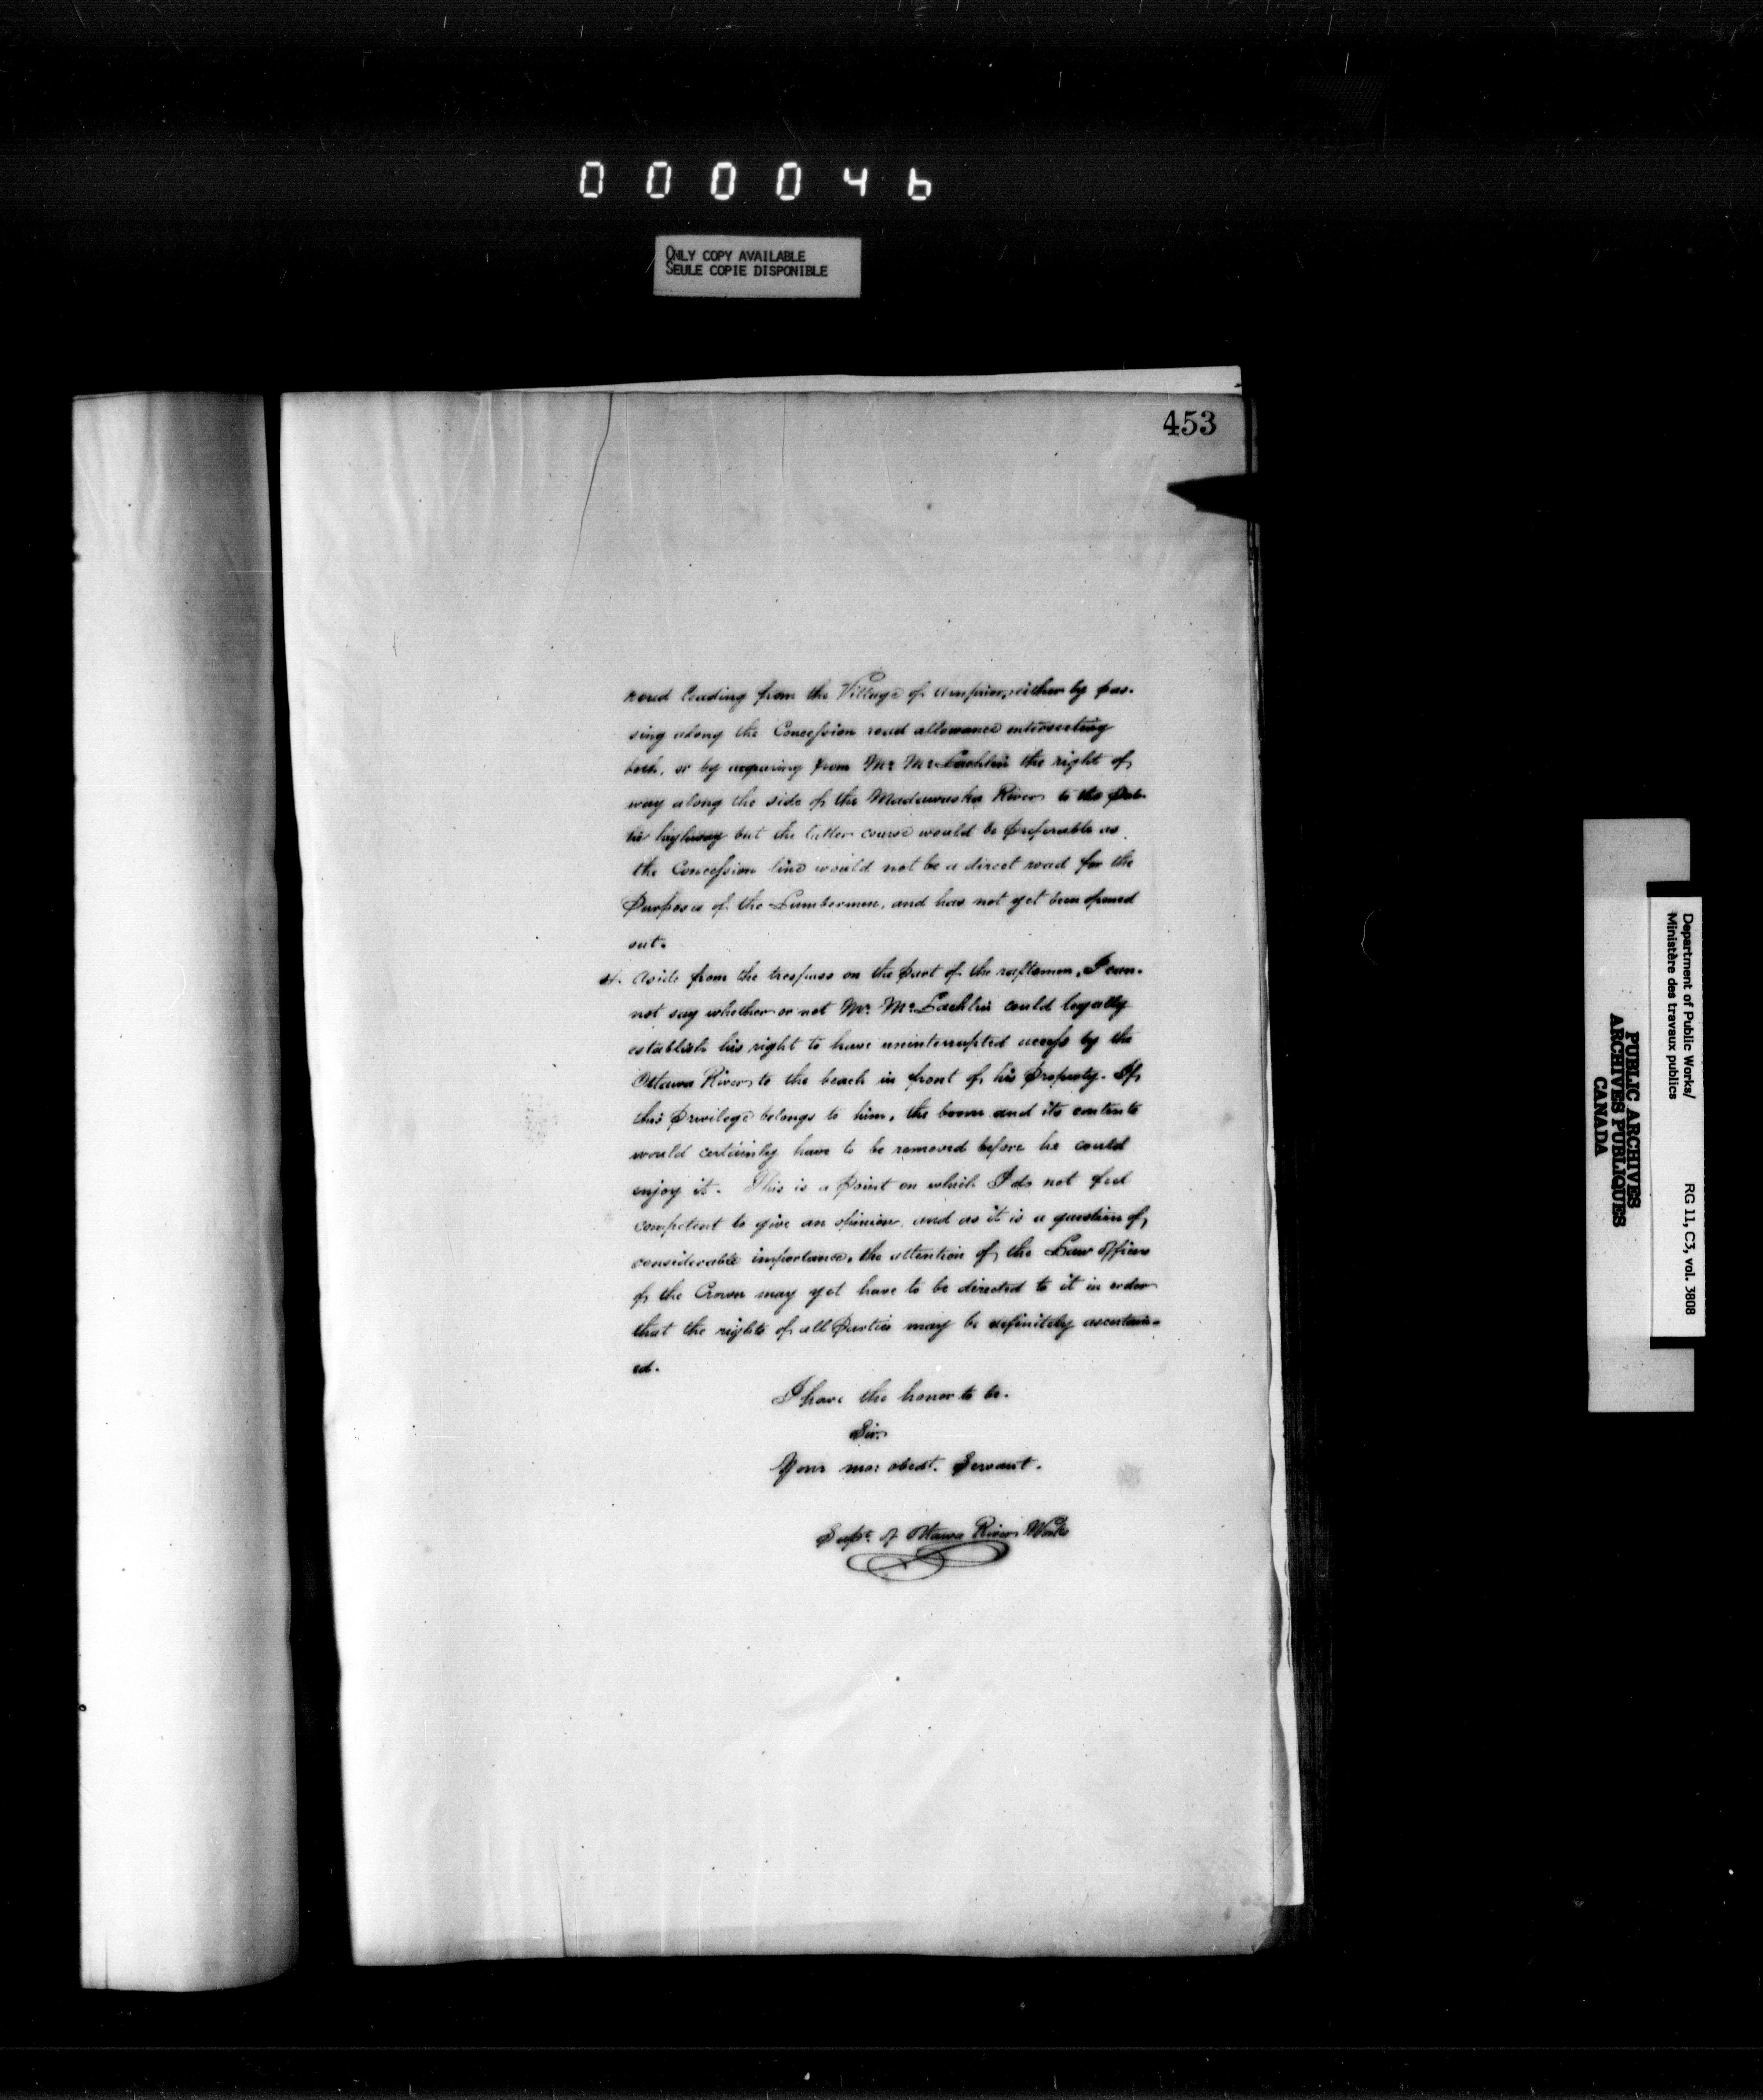 000046
ONLY COPY AVAILABLE
SEULE COPIE DISPONIBLE
453
road leading from the Village of Arnprior, either by pas-
sing along the Concession road allowance intersecting
both, or by acquiring from Mr. McLachlin the right of
way along the side of the Madawaska River to the Pub-
lic highway but the latter course would be preferable as
the Concession line would not be a direct road for the
Purposes of the Lumbermen, and has not yet been opened
out.
4. Aside from the trespass on the part of the raftsmen, I can-
not say whether or not Mr. McLachlin could legally
establish his right to have uninterrupted access by the
Ottawa River to the beach in front of his Property. If
this Privilege belongs to him, the boom and its contents
would certainly have to be removed before he could
enjoy it. This is a Point on which I do not feel
competent to give an opinion, and as it is a question of
considerable importance, the attention of the Law Officers
of the Crown may yet have to be directed to it in order
that the rights of all Parties may be definitely ascertain-
ed.
I have the honor to be.
Sir.
Your mo: obedt. Servant.
Supt. of Ottawa River Works
Department of Public Works/
Ministère des travaux publics
RG 11, C3, vol. 3808
PUBLIC ARCHIVES
ARCHIVES PUBLIQUES
CANADA